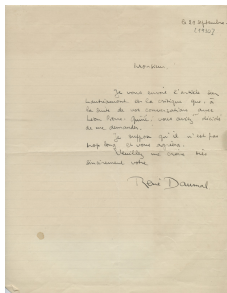 le 29 septembre
(1930)
Monsieur,
Je vous envoie l'article sur
l'envoûtement et la critique que, à
la suite de vos conversations avec
Léon Pierre-Quint, vous avez décidé
de me demander.
Je suppose qu'il n'est pas
trop long et vous agréera.
Veuillez me croire très
sincèrement vôtre
René Daumal